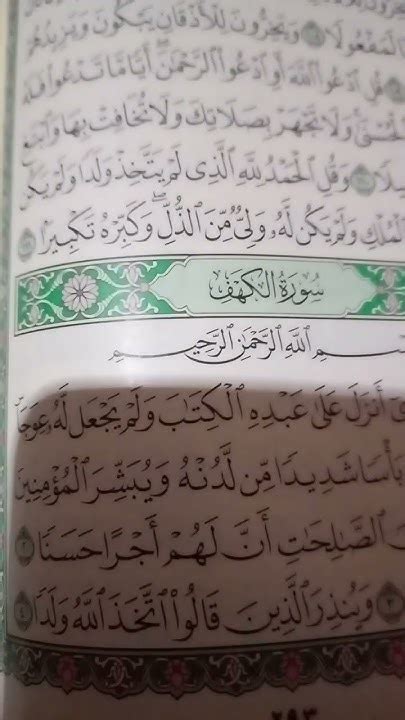 لَمَفْعُولًا ۝١٠٨ وَيَخِرُّونَ لِلْأَذْقَانِ يَبْكُونَ وَيَزِيدُهُمْ
قُلِ ادْعُوا۟ ٱللَّهَ أَوِ ٱدْعُوا۟ ٱلرَّحْمَٰنَ أَيًّا مَّا تَدْعُوا۟ فَلَهُ
ٱلْحُسْنَىٰ وَلَا تَجْهَرْ بِصَلَاتِكَ وَلَا تُخَافِتْ بِهَا وَٱبْتَغِ
سَبِيلًا ۝١١٠ وَقُلِ ٱلْحَمْدُ لِلَّهِ ٱلَّذِى لَمْ يَتَّخِذْ وَلَدًا وَلَمْ يَكُن
ٱلْمُلْكِ وَلَمْ يَكُن لَّهُۥ وَلِىٌّ مِّنَ ٱلذُّلِّ ۖ وَكَبِّرْهُ تَكْبِيرًۢا ۝١١١
سُورَةُ الكَهْفِ
بِسْمِ ٱللَّهِ ٱلرَّحْمَٰنِ ٱلرَّحِيمِ
أَنزَلَ عَلَىٰ عَبْدِهِ ٱلْكِتَٰبَ وَلَمْ يَجْعَل لَّهُۥ عِوَجَاۜ
بَأْسًا شَدِيدًا مِّن لَّدُنْهُ وَيُبَشِّرَ ٱلْمُؤْمِنِينَ
ٱلصَّٰلِحَٰتِ أَنَّ لَهُمْ أَجْرًا حَسَنًا ۝٢
۝٣ وَيُنذِرَ ٱلَّذِينَ قَالُوا۟ ٱتَّخَذَ ٱللَّهُ وَلَدًا ۝٤
٢٩٣